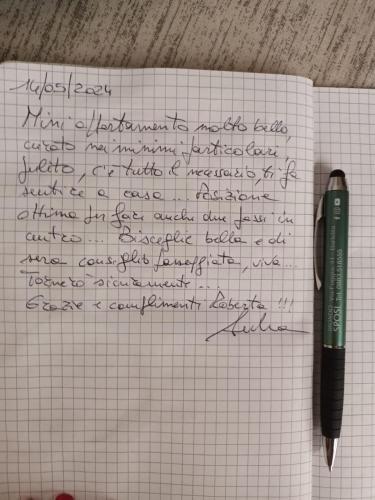 14/05/2024
Mini appartamento molto bello,
curato nei minimi particolari,
pulito, c'è tutto il necessario, ti fa
sentire a casa... Posizione
ottima per fare anche due passi in
centro... Bisceglie bella e di
sera consiglio passeggiata, viva...
Tornerò sicuramente...
Grazie e complimenti Roberta !!!
SPOSI